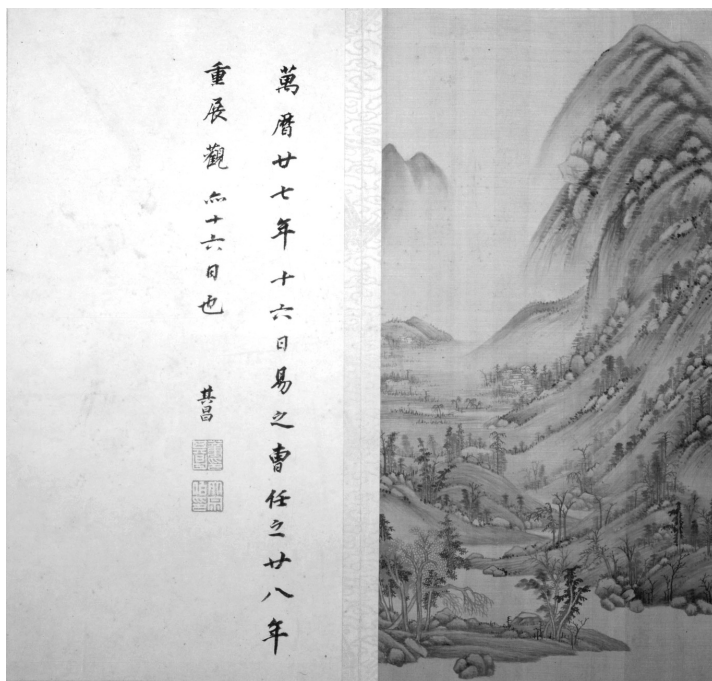 萬曆廿七年十六日易之曹任之廿八年
重展觀亦十六日也
其昌